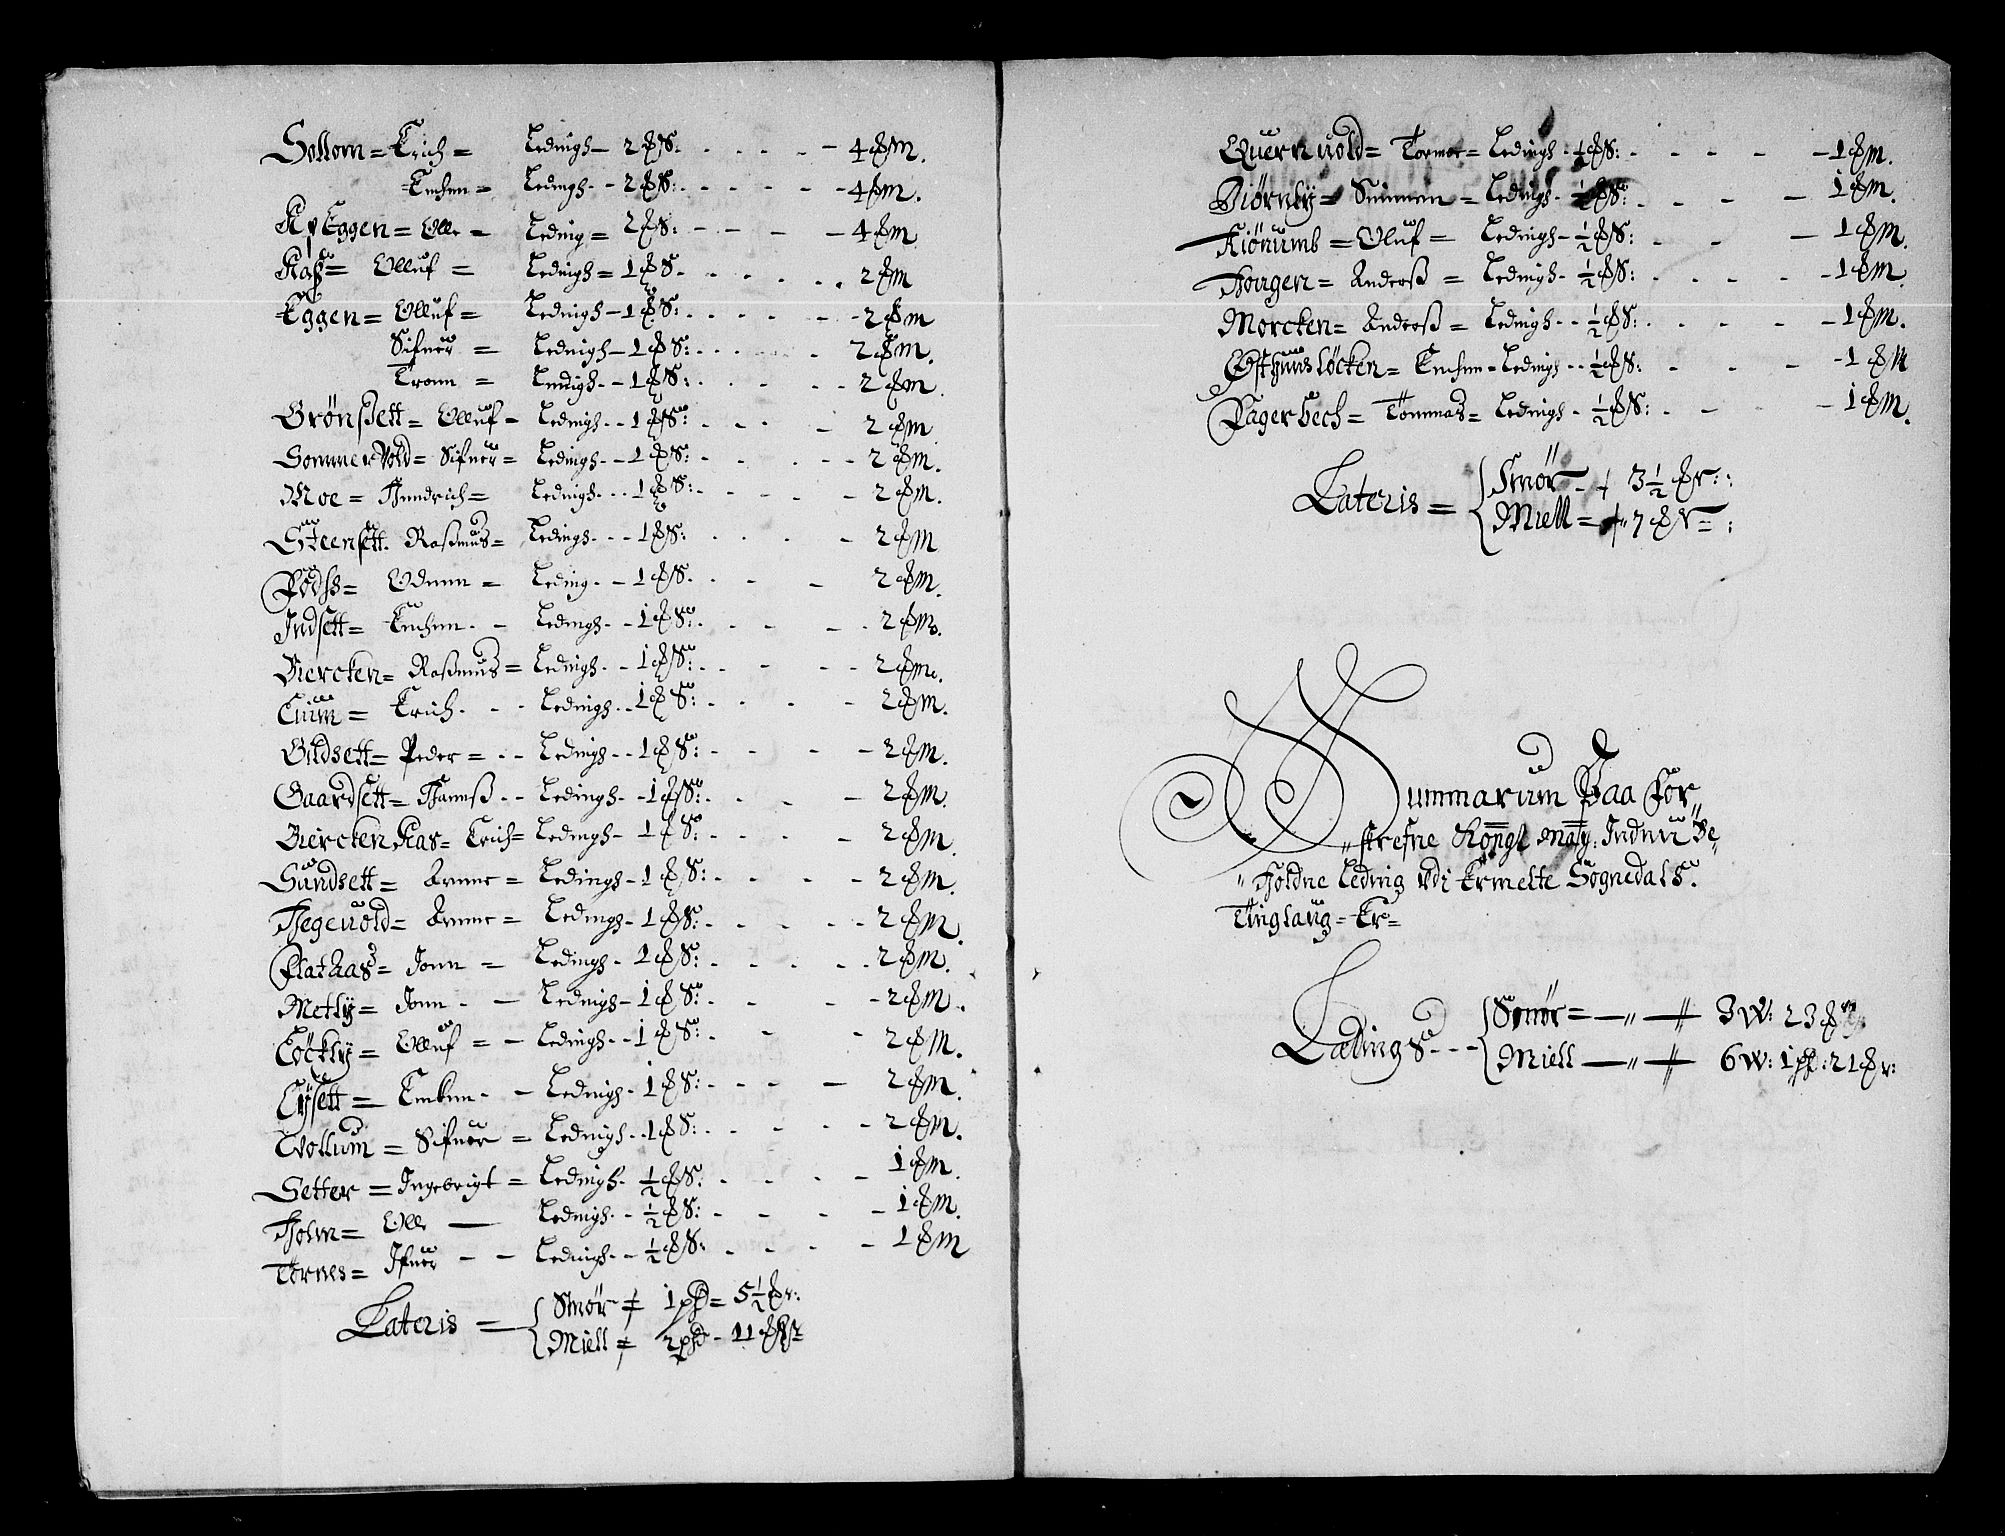 Sollom = Erich = Ledingh - 2 ℔ S: - - - - 4 ℔ M.
Enchen = Ledingh - - 2 ℔ S: - - - - 4 ℔ M.
Op Eggen = Olle = Leding = 2 ℔ S: - - - - 4 ℔ M
Aas = Olluf = Ledingh = 1 ℔ S - - - - 2 ℔ M
Eggen = Olluf = Ledingh - 1 ℔ S: - - - - 2 ℔ M
Sifuer = Ledingh - 1 ℔ S: - - - - 2 ℔ M.
Tronn = Ledingh - - 1 ℔ S: - - - - 2 ℔ M.
Grönsett = Olluf - Ledingh - - 1 ℔ S: - - - 2 ℔ M
Sommervold = Sifuer = Ledingh - - 1 ℔ S: - - - - 2 ℔ M.
Moe = Hendrich = Ledingh - - 1 ℔ S: - - - - 2 ℔ M.
Steensett. Rassmus = Ledingh - - - 1 ℔ S: - - - 2 ℔ M
Odenn = Leding - - 1 ℔ S. - - - 2 ℔ M.
Indsett = Enchen - - Ledingh - - 1 ℔ S: - - - - 2 ℔ M.
Biercken = Rassmus = Ledingh - - 1 ℔ S: - - - - 2 ℔ M.
Lium = Erich - - - Ledingh - - 1 ℔ S: - - - 2 ℔ M.
Gildsett = Peder = - - Ledingh - - 1 ℔ S: - - - - 2 ℔ M.
Gaardsett = Hannss - - Ledingh - - 1 ℔ S: - - - 2 ℔ M.
Biercken Aas = Erich = Ledingh - 1 ℔ S: - - - 2 ℔ M.
Sundsett = Arnne = Ledingh - 1 ℔ S: - - - - 2 ℔ M.
Hegevold = Arnne = Ledingh - 1 ℔ S: - - - - 2 ℔ M.
Flat Aas = Jonn = Ledingh - 1 ℔ S: - - - - 2 ℔ M.
Metly = Jonn - - Ledingh - 1 ℔ S: - - - 2 ℔ M.
Löckly = Olluf = - Ledingh - - 1 ℔ S: - - 2 ℔ M.
Lysett = Enchen - - Ledingh - 1 ℔ S: - - - 2 ℔ M.
Wollum = Sifuer = Ledingh - - 1 ℔ S: - - - - 2 ℔ M.
Setter = Ingebrigt = Ledingh - ½ ℔ S: - - - - 1 ℔ M.
Holm = Olle — Ledingh - - ½ ℔ S: - - - - 1 ℔ M.
Tornes = Ifuer - - Ledingh - - ½ ℔ S: - - - - 1 ℔ M
Lateris = Smör 1 pd = 5½ ℔r:
Miell = 2 pd - 11 ℔r
Quernuold = Tormor = Ledingh - ½ ℔ S: - - - - 1 ℔ M.
Biörnly = Simmen = Ledingh - ½ ℔ S: - - - 1 ℔ M.
Kiönumb = Oluf = Ledingh - ½ ℔ S: - - - 1 ℔ M.
Hougen = Anderss = Ledingh - ½ ℔ S: - - - - 1 ℔ M.
Morcken = Anderss = Ledingh - - ½ ℔ S: - - - - 1 ℔ M.
Östhuus löcken = Enchen - Ledingh - - ½ ℔ S: - - - 1 ℔ M
Fagerbech = Tommas = Ledingh - ½ ℔ S: - - - 1 ℔ M.
Lateris = Smör - 3½ ℔r:
Miell = 7 ℔r:
Summarum Paa For
skrefne Kongl: May: Inden Be
Holdne Leding Vdi Ermelte Sognedals
Tinglaug = Er =
Ledings - - - Smör = — 3 W: 23 ℔r
Miell — 6 W: 1 pd: 21 ℔r: